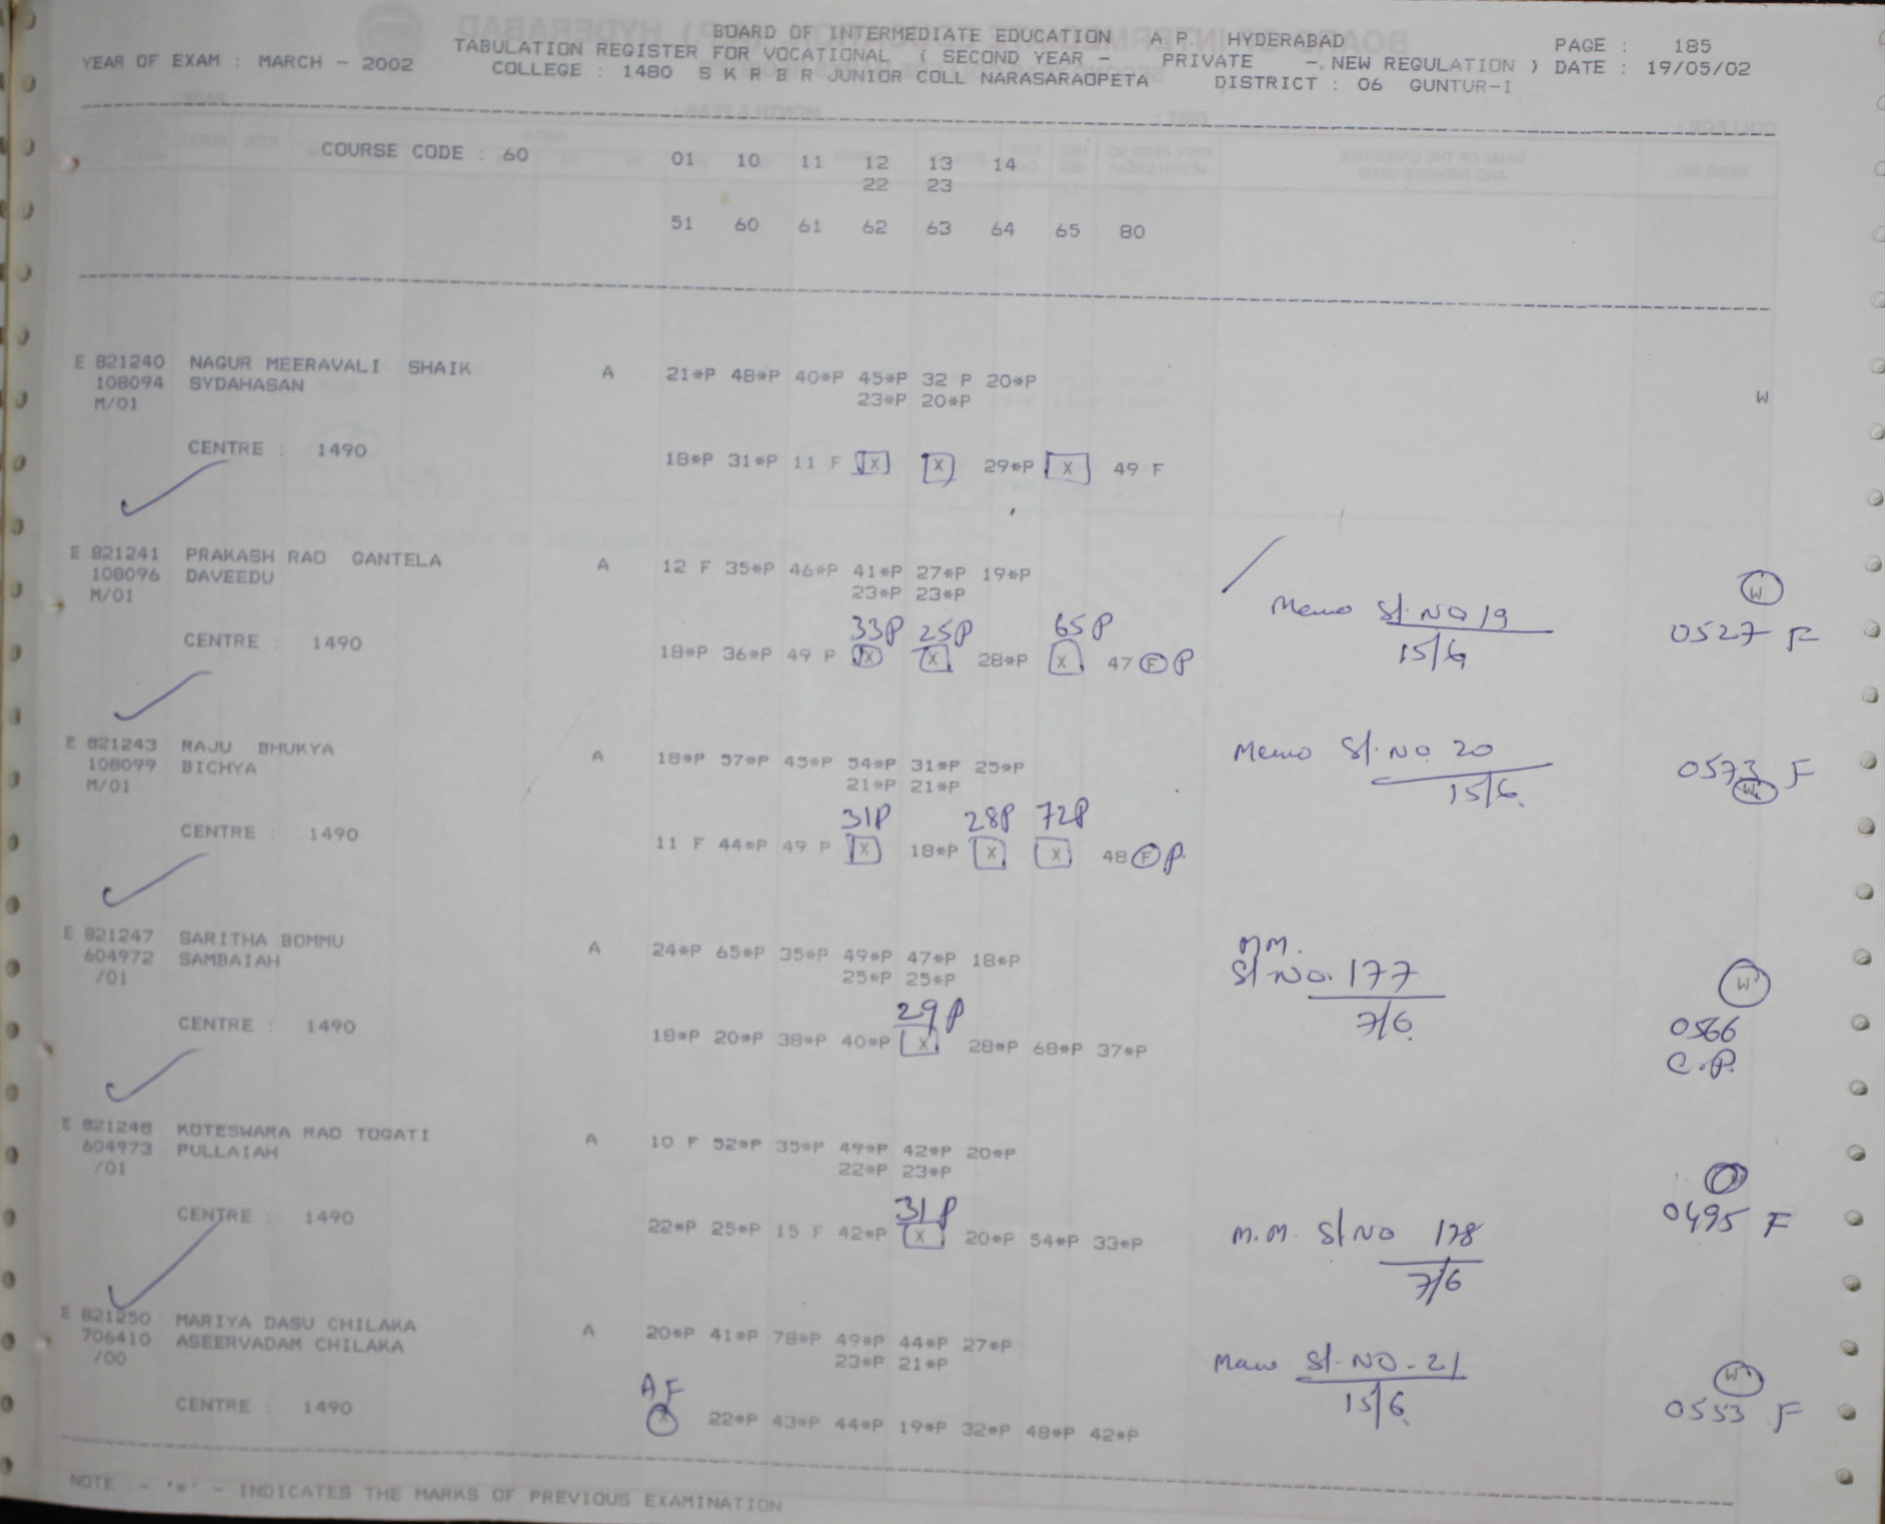 BOARD OF INTERMEDIATE EDUCATION A P HYDERABAD PAGE : 185
YEAR OF EXAM : MARCH - 2002 TABULATION REGISTER FOR VOCATIONAL ( SECOND YEAR - PRIVATE - NEW REGULATION ) DATE : 19/05/02
COLLEGE : 1480 S K R B R JUNIOR COLL NARASARAOPETA DISTRICT : 06 GUNTUR-I
COURSE CODE : 60 01 10 11 12 13 14
22 23
51 60 61 62 63 64 65 80
E 821240 NAGUR MEERAVALI SHAIK A 21*P 48*P 40*P 45*P 32 P 20*P
108094 SYDAHASAN 23*P 20*P W
M/01
CENTRE : 1490 18*P 31*P 11 F X X 29*P X 49 F
E 821241 PRAKASH RAO GANTELA A 12 F 35*P 46*P 41*P 27*P 19*P
108096 DAVEEDU 23*P 23*P W
M/01 Memo Sl. NO 19
33P 25P 65P 15/6 0527 F
CENTRE : 1490 18*P 36*P 49 P X X 28*P X 47 F P
E 821243 RAJU BHUKYA A 18*P 57*P 45*P 54*P 31*P 25*P Memo Sl. NO. 20
108099 BICHYA 21*P 21*P 15/6. 0573 F
M/01 W
31P 28P 72P
CENTRE : 1490 11 F 44*P 49 P X 18*P X X 48 F P.
E 821247 SARITHA BOMMU A 24*P 65*P 35*P 49*P 47*P 18*P M M.
604972 SAMBAIAH 25*P 25*P Sl No. 177 W
/01 7/6.
29P 0566
CENTRE : 1490 18*P 20*P 38*P 40*P X 28*P 68*P 37*P C.P.
E 821248 KOTESWARA RAO TOGATI A 10 F 52*P 35*P 49*P 42*P 20*P
604973 PULLAIAH 22*P 23*P
/01
31P 0495 F
CENTRE : 1490 22*P 25*P 15 F 42*P X 20*P 54*P 33*P M.M. Sl. NO 178
7/6
E 821250 MARIYA DASU CHILAKA A 20*P 41*P 78*P 49*P 44*P 27*P
706410 ASEERVADAM CHILAKA 23*P 21*P Memo Sl. NO. 21
/00 15/6. W
A F 0553 F
CENTRE : 1490 X 22*P 43*P 44*P 19*P 32*P 48*P 42*P
NOTE :- '*' - INDICATES THE MARKS OF PREVIOUS EXAMINATION